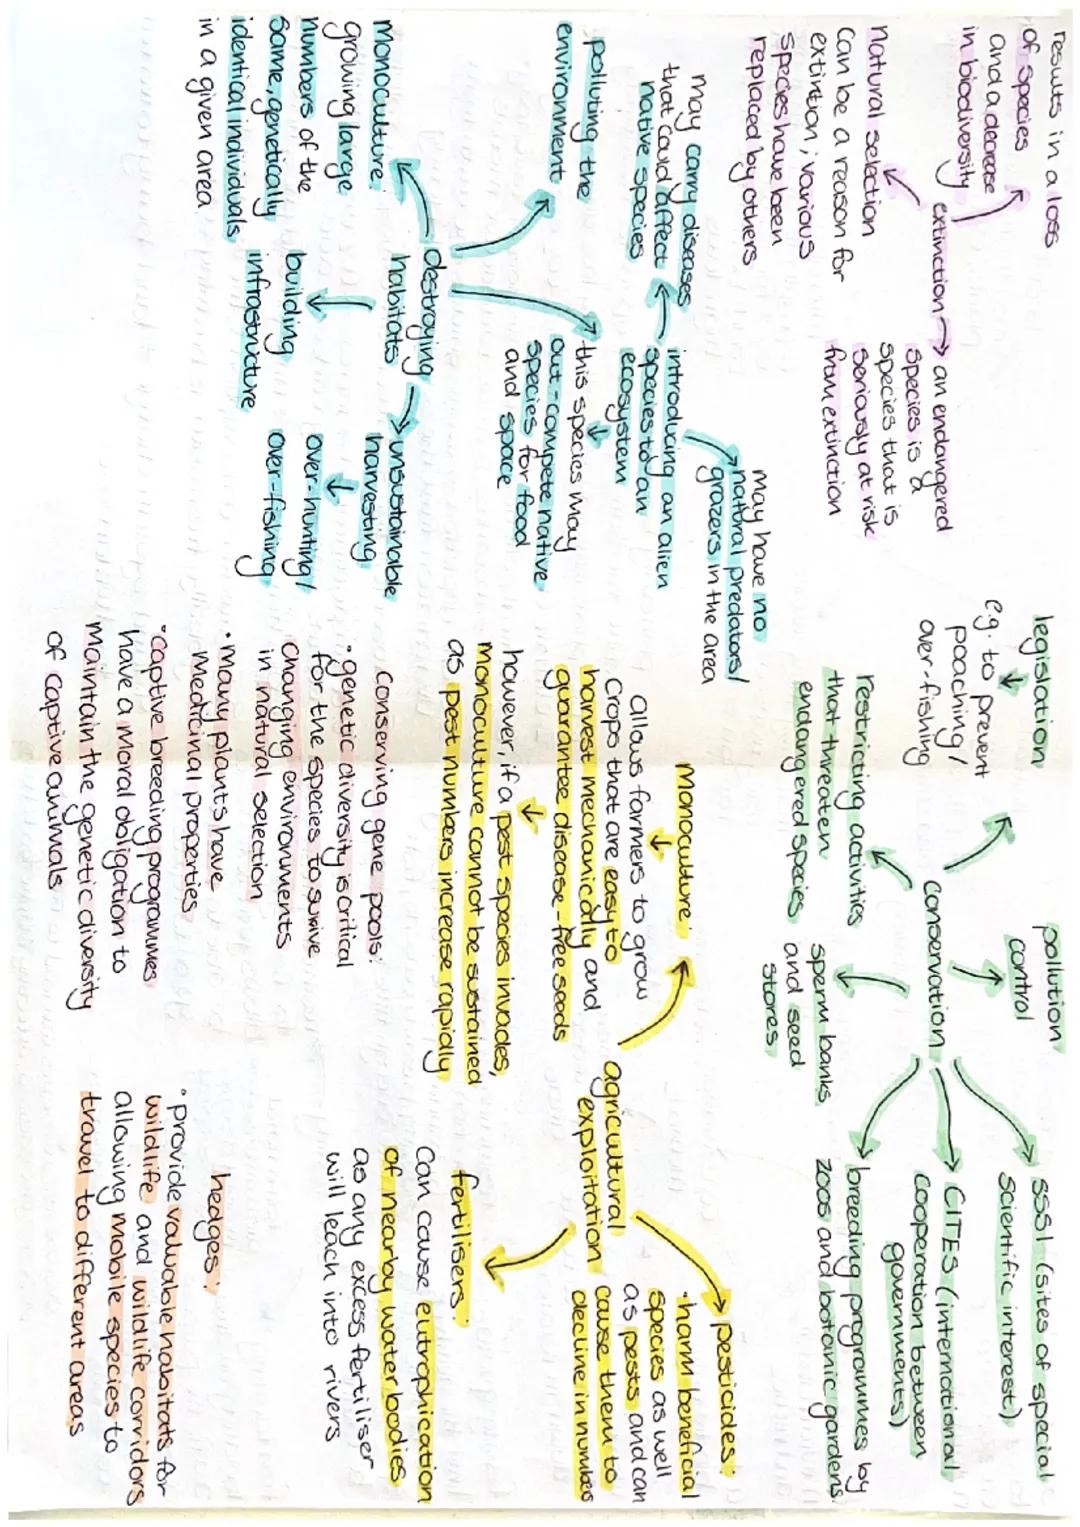 results in a loss
of species
and a decrease
in biodiversity
extinction
an endangered
species is a
species that is
seriously at risk
from extinction
natural selection
can be a reason for
extintion, various
species have been
replaced by others
may have no
natural predators/
grazers in the area
introducing an alien
species to an
ecosystem
may carry diseases
that could affect
native species
this species may
out-compete native
species for food
and space
polluting the
environment
destroying
habitats
unsustainable
harvesting
over-hunting/
over-fishing
building
infrastructure
monoculture:
growing large
numbers of the
same, genetically
identical individuals
in a given area
legislation
e.g. to prevent
poaching/
over-fishing
pollution
control
conservation
SSSI (sites of special
scientific interest)
CITES (international
cooperation between
governments)
breeding programmes by
zoos and botanic gardens
sperm banks
and seed
stores
restricting activities
that threaten
endangered species
monoculture:
allows farmers to grow
crops that are easy to
harvest mechanically and
guarantee disease-free seeds
however, if a pest species invades,
monoculture cannot be sustained
as pest numbers increase rapidly
agricultural
exploitation
pesticides:
•harm beneficial
species as well
as pests and can
cause them to
decline in numbers
fertilisers:
can cause eutrophication
of nearby water bodies
as any excess fertiliser
will leach into rivers
conserving gene pools:
•genetic diversity is critical
for the species to survive
changing environments
in natural selection
•many plants have
medicinal properties
•captive breeding programmes
have a moral obligation to
maintain the genetic diversity
of captive animals
hedges:
•provide valuable habitats for
wildlife and wildlife corridors
allowing mobile species to
travel to different areas